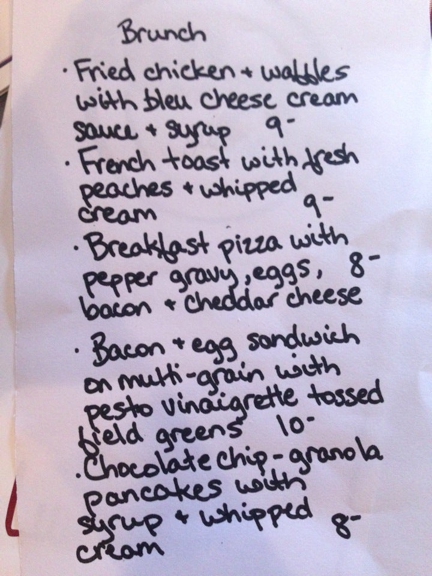 Brunch
· Fried chicken + waffles
with bleu cheese cream
sauce + syrup 9-
· French toast with fresh
peaches + whipped
cream 9-
· Breakfast pizza with
pepper gravy, eggs, 8-
bacon + cheddar cheese
· Bacon + egg sandwich
on multi-grain with
pesto vinaigrette tossed
field greens 10-
· Chocolate chip-granola
pancakes with
syrup + whipped 8-
cream